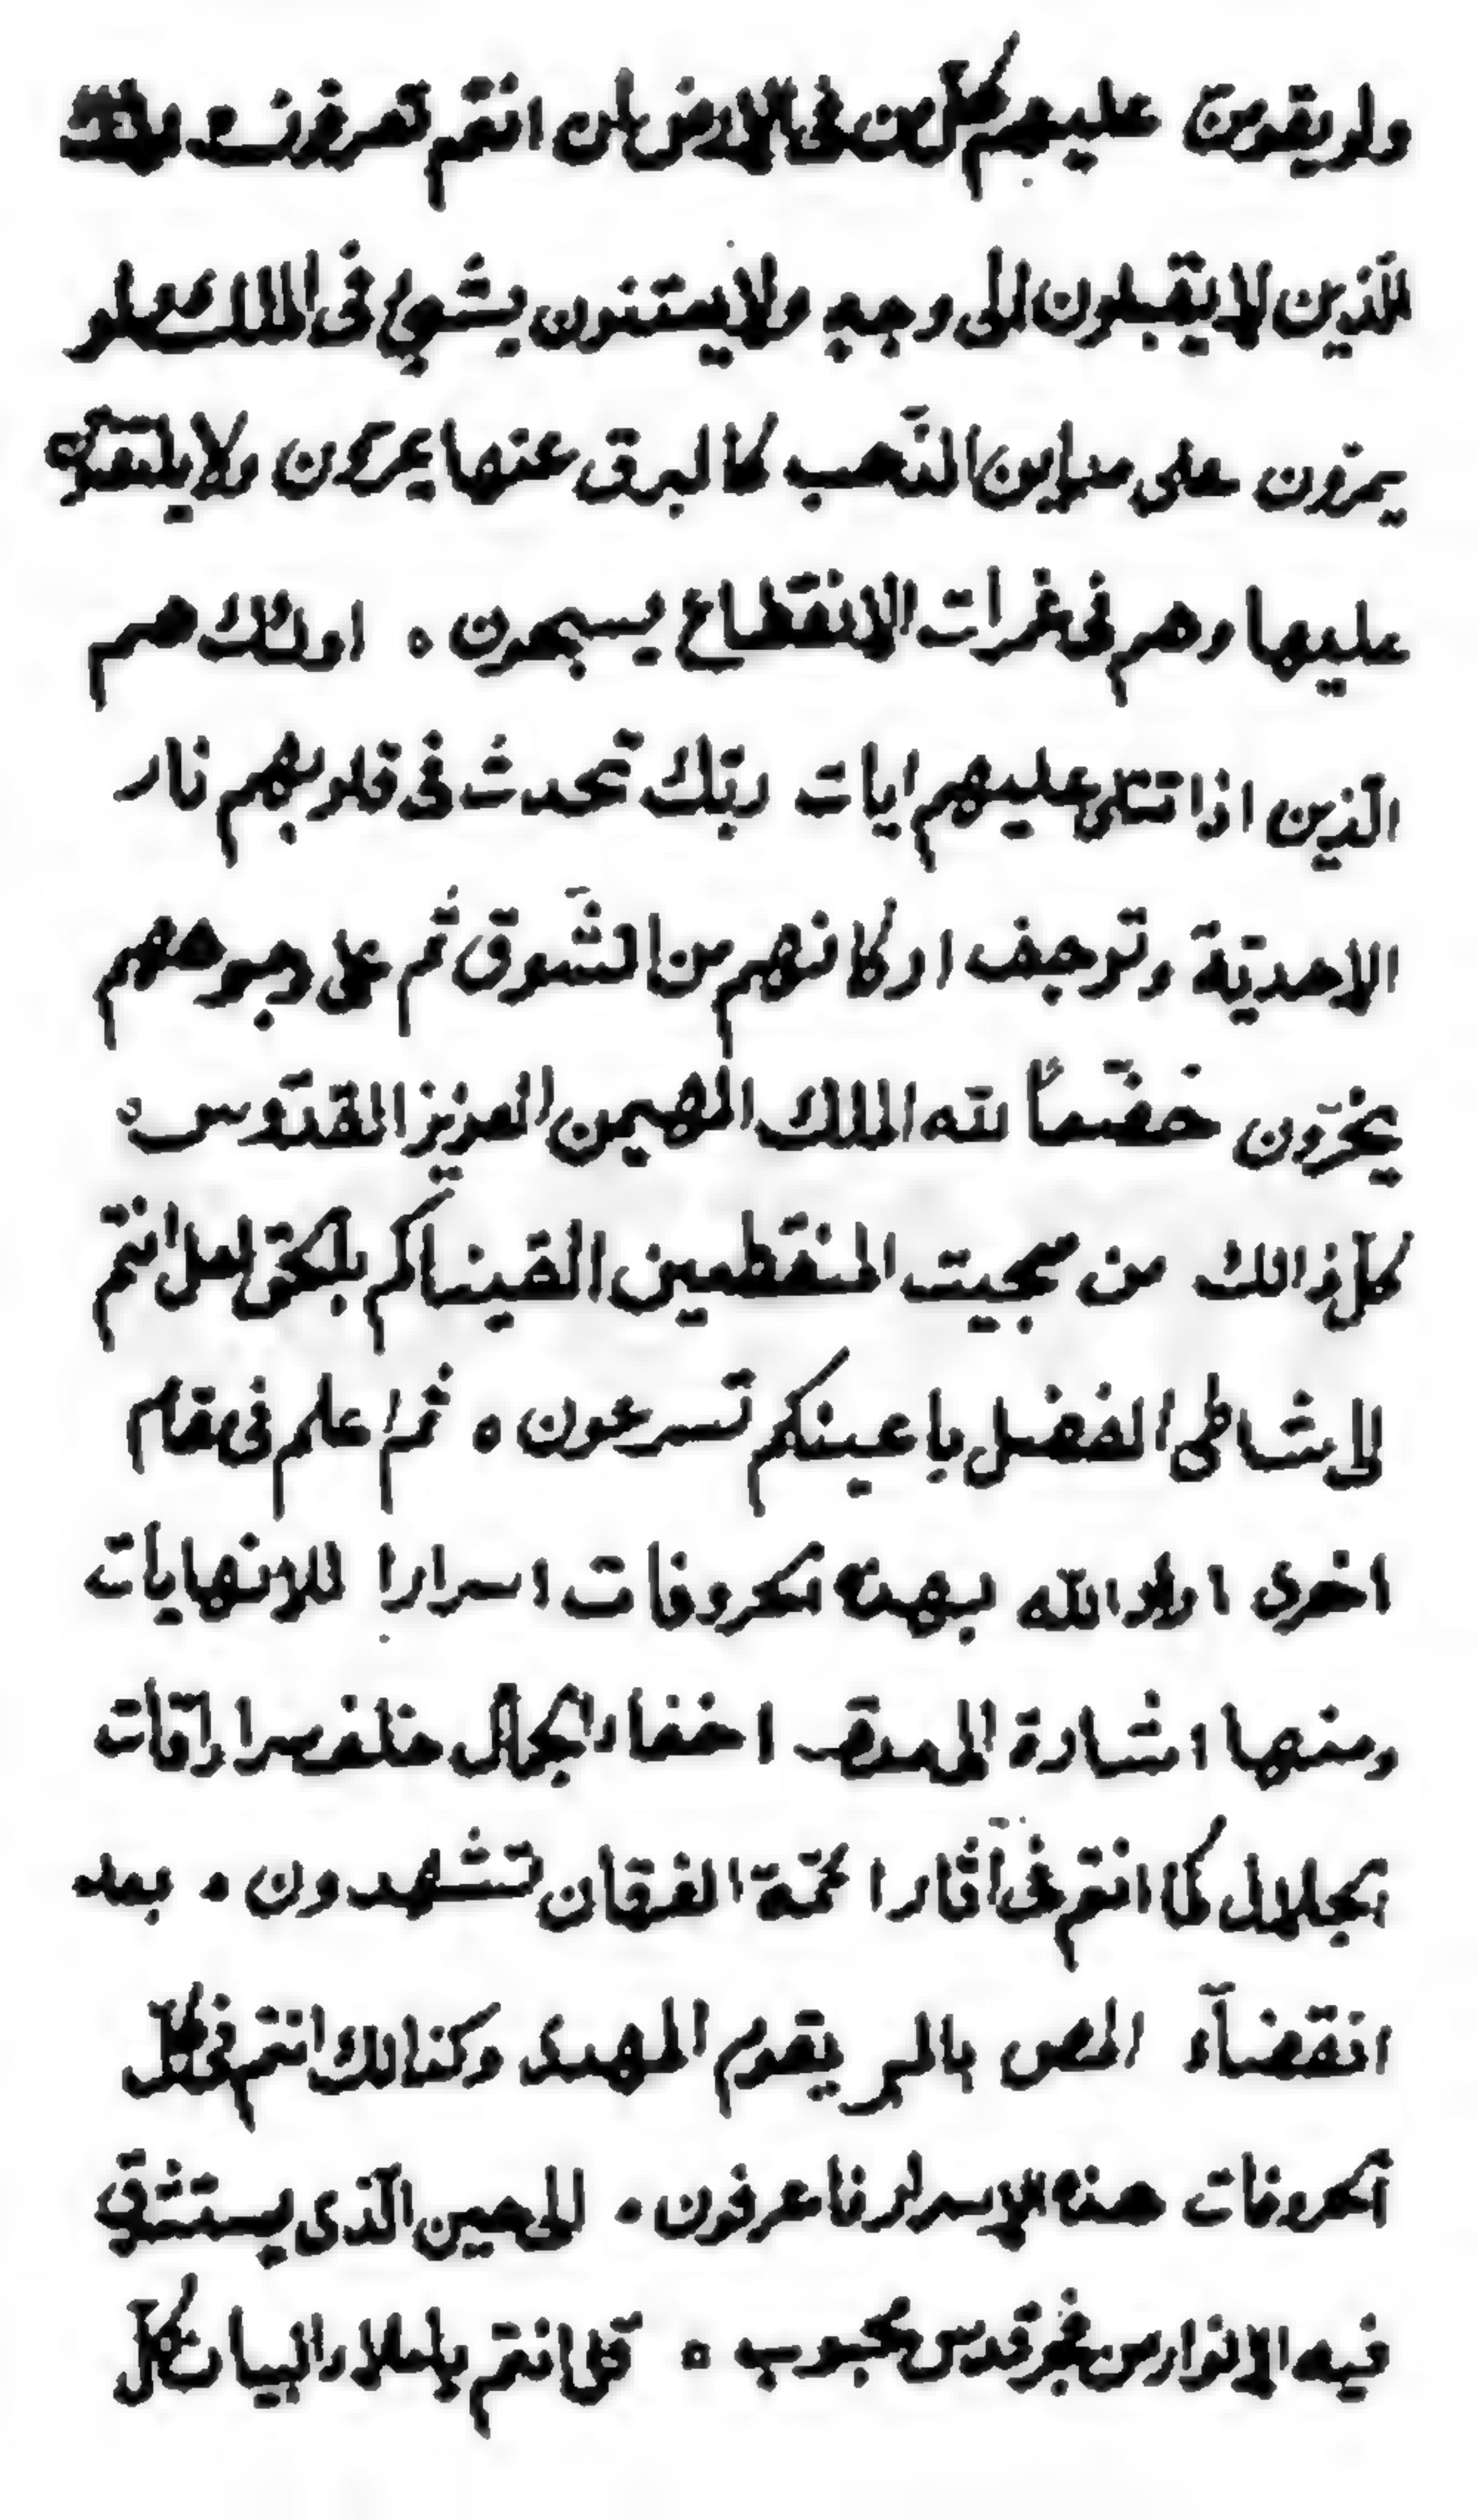 ولو يقومن عليهم كل من فى الارض ان انتم تعرفون ه
الذين لا يقبلون الى وجه ولا يعتنون بشئ فى الملك ولو
يمرون على معادن الذهب كالبرق عنها يمركون ولا يلتفتون
عليها وهم فى غمرات الانقطاع يسبحون ه اولئك هم
الذين اذا تتلى عليهم ايات ربك تحدث فى قلوبهم نار
الاحدية وترجف اركانهم من الشوق ثم على وجوههم
يخرون خضعاً لله الملك المهيمن العزيز القدوس ه
كل ذالك من سجيت المنقطعين القيناكم بالحق لعل انتم
الى شاطئ الفضل باعينكم تسرعون ه ثم اعلم فى مقام
اخرى اراد الله بهذه الحروفات اسرارا للانهايات
ومنها اشارة الى مدة اخفاء الجمال خلف سرادقات
الجلال كما انتم فى آثار ائمة الفرقان تشهدون ه بعد
انقضآء المص بالمر يقوم المهدى وكذالك انتم فى كل
الحروفات هذه الاسرار فاعرفون ه الى حين الذى يستشرق
فيه الانوار من فجر قدس محبوب ه قل انتم يا ملاء البيان كل